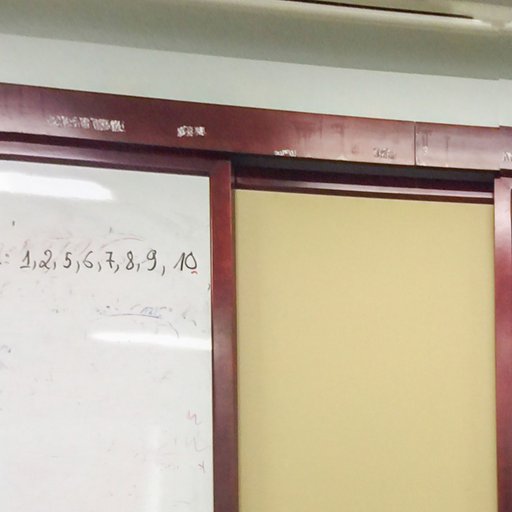 : 1, 2, 5, 6, 7, 8, 9, 10